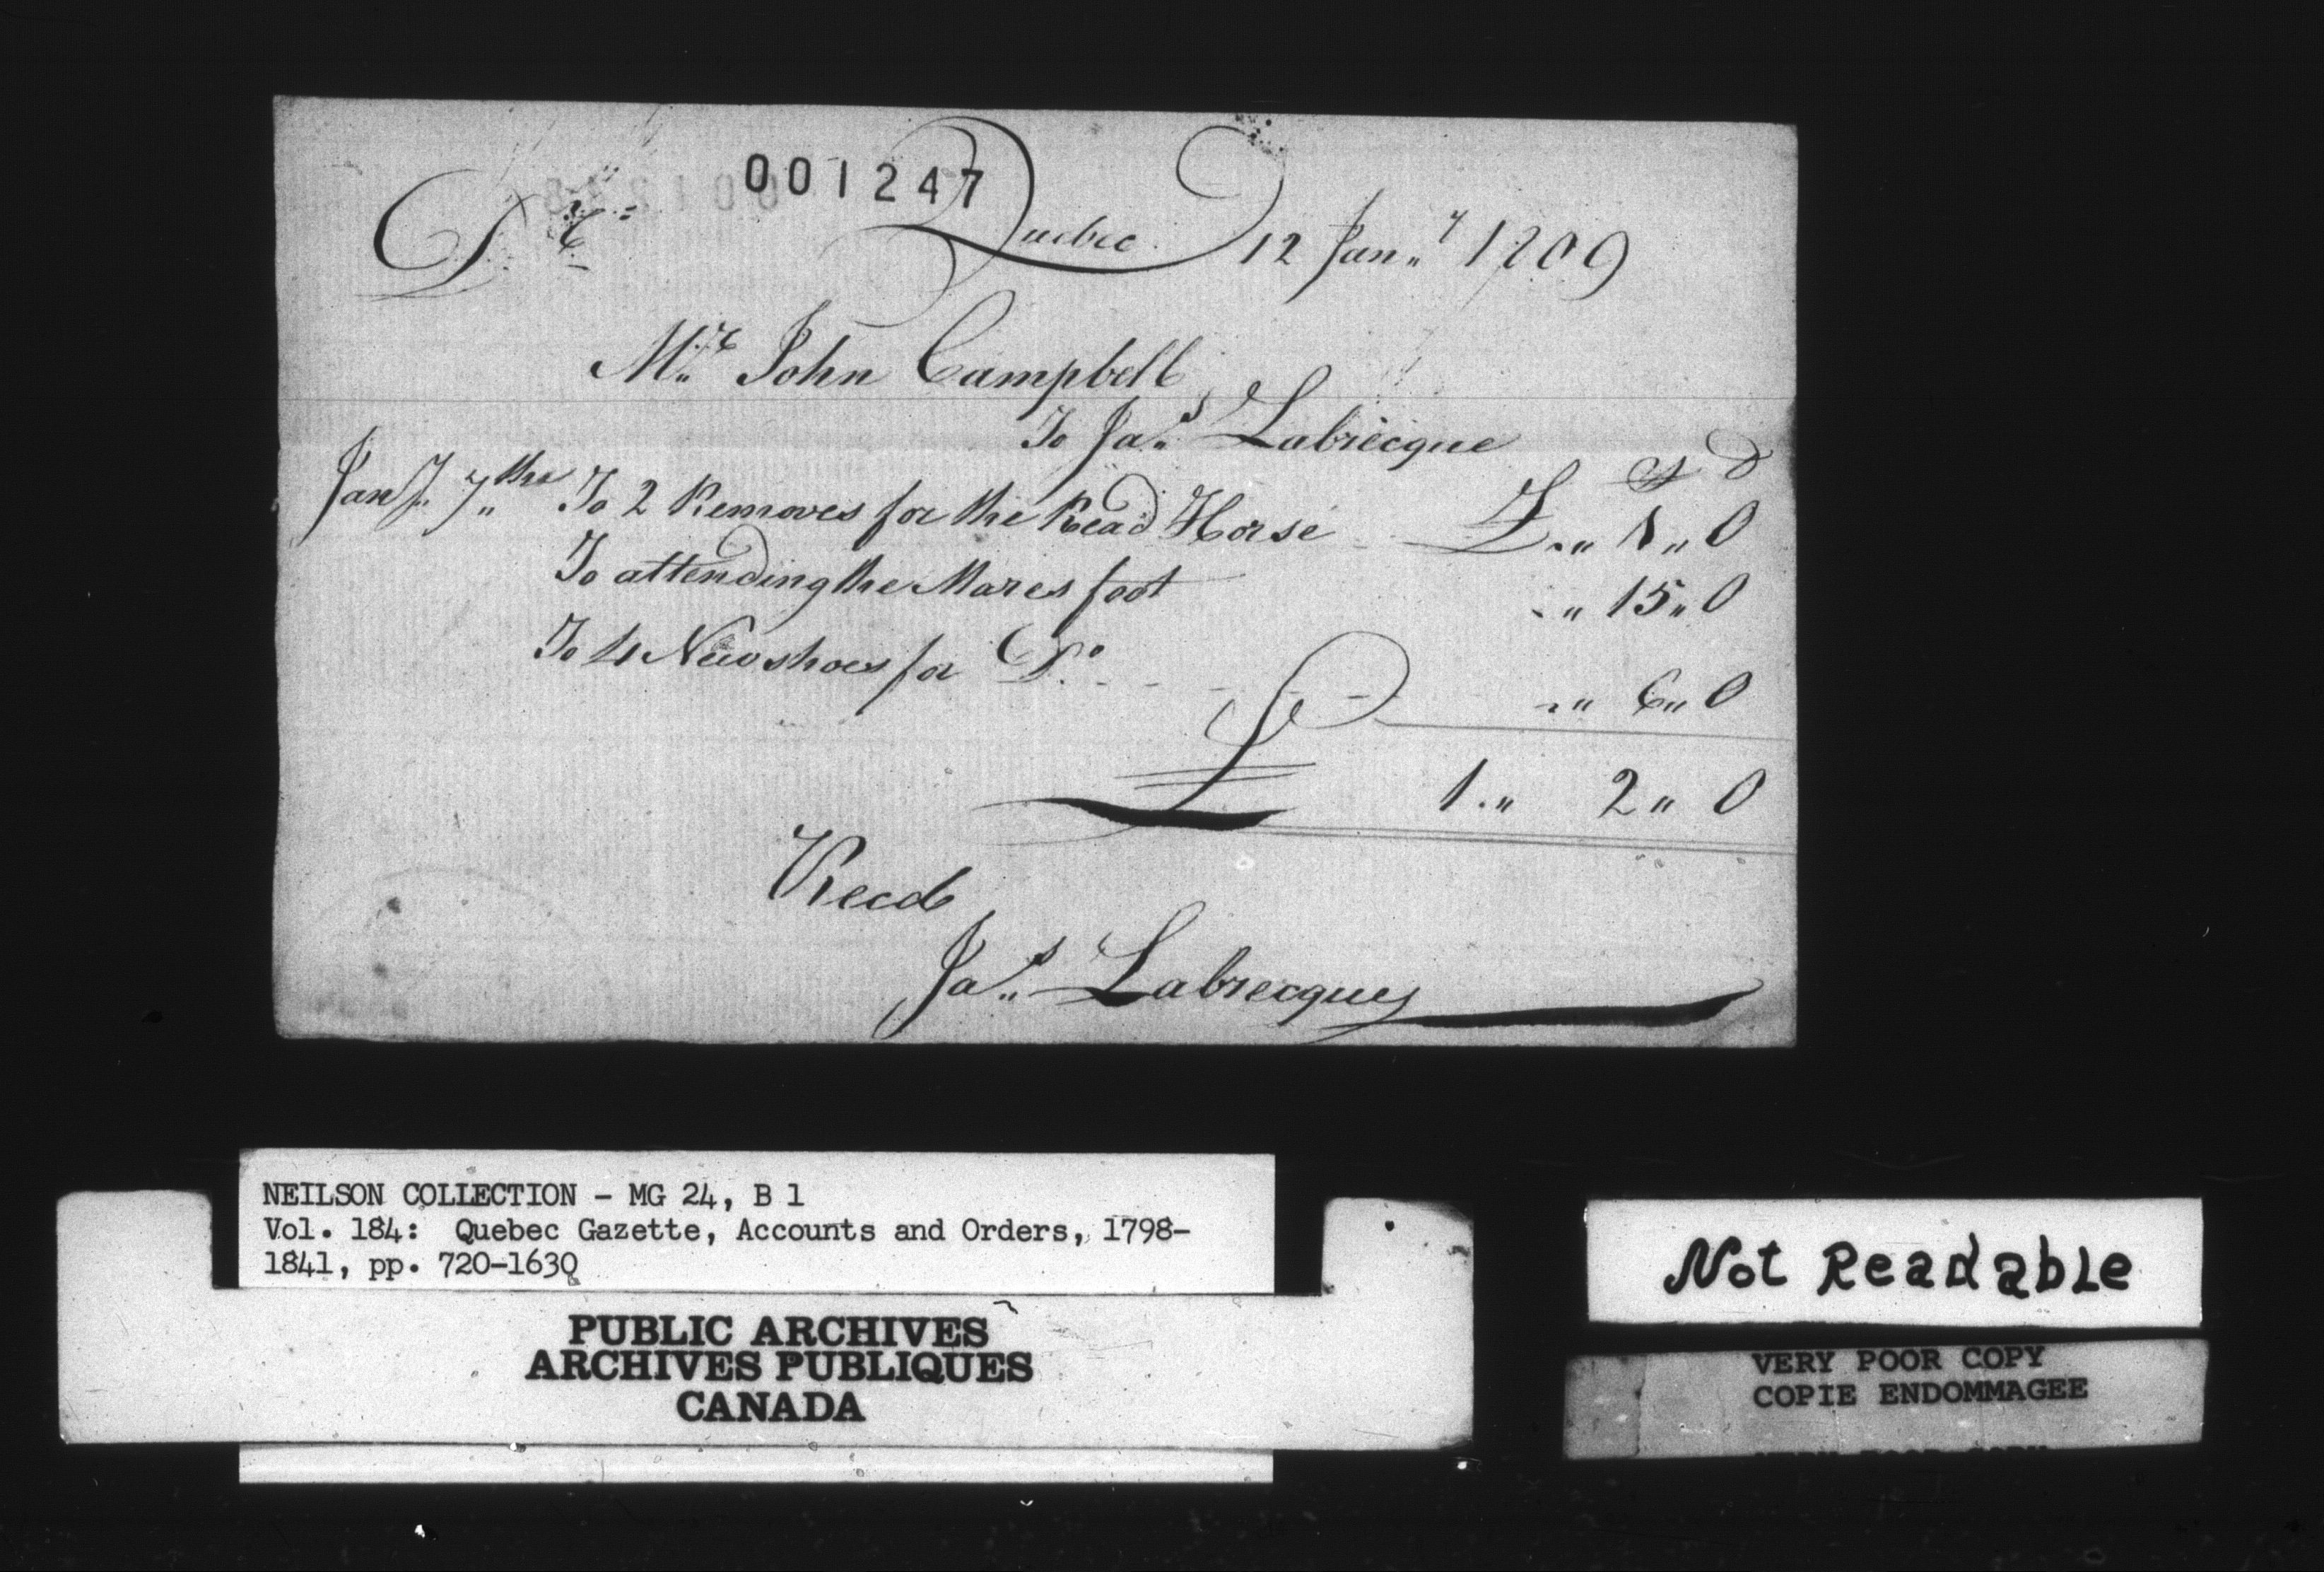 001247
Dr Quebec 12 Jany 1809
Mr John Campbell
To Jas Labrecque
£ S D
Jany 7th To 2 Removes for the Read Horse £ .. " 1 " 0
To attending the Mares foot .. " 15 " 0
To 4 New shoes for Do .. " 6 " 0
£ 1 .. " 2 " 0
Recd
Jas Labrecque
NEILSON COLLECTION - MG 24, B 1
Vol. 184: Quebec Gazette, Accounts and Orders, 1798-
1841, pp. 720-1630
PUBLIC ARCHIVES
ARCHIVES PUBLIQUES
CANADA
Not Readable
VERY POOR COPY
COPIE ENDOMMAGEE